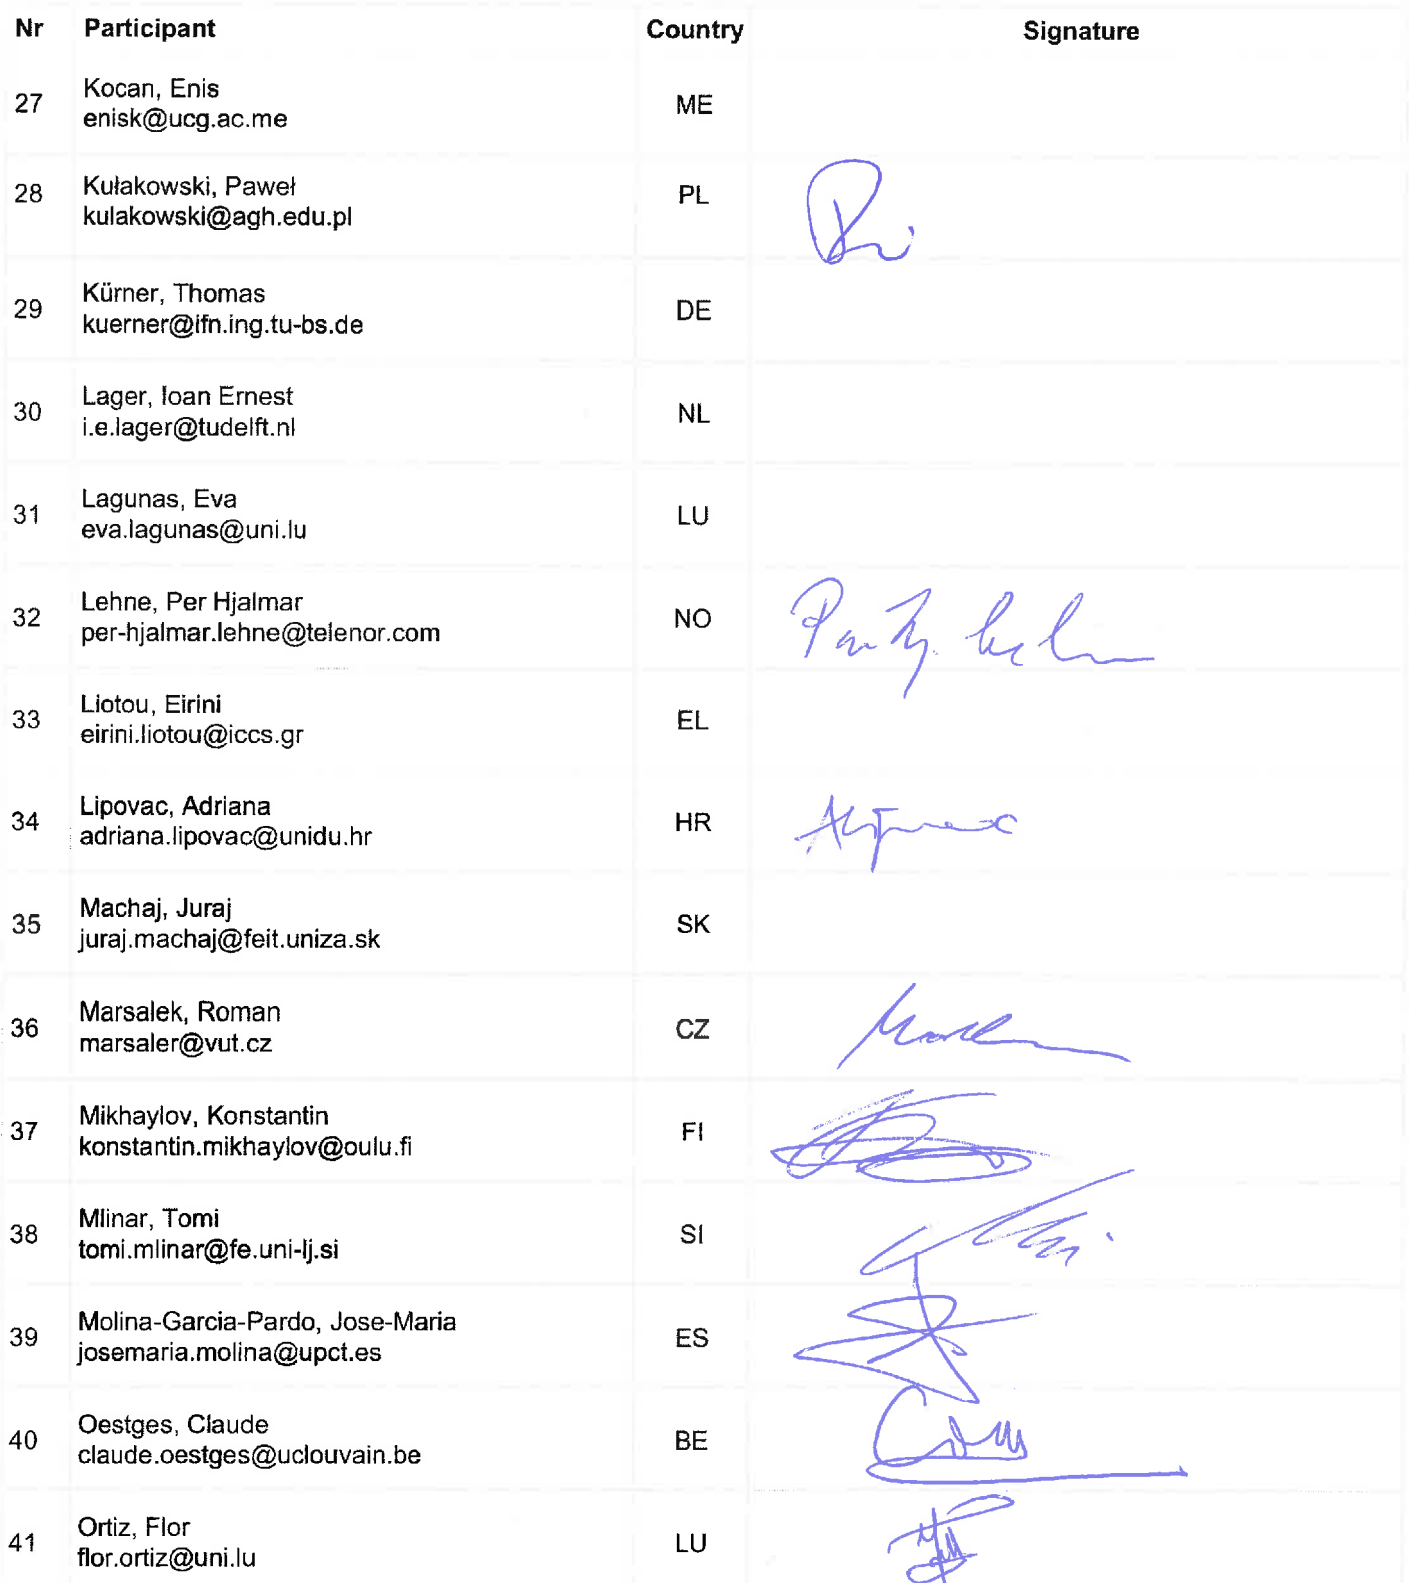 Nr Participant Country Signature
27 Kocan, Enis ME
enisk@ucg.ac.me
28 Kułakowski, Paweł PL
kulakowski@agh.edu.pl
29 Kürner, Thomas DE
kuerner@ifn.ing.tu-bs.de
30 Lager, Ioan Ernest NL
i.e.lager@tudelft.nl
31 Lagunas, Eva LU
eva.lagunas@uni.lu
32 Lehne, Per Hjalmar NO
per-hjalmar.lehne@telenor.com
33 Liotou, Eirini EL
eirini.liotou@iccs.gr
34 Lipovac, Adriana HR
adriana.lipovac@unidu.hr
35 Machaj, Juraj SK
juraj.machaj@feit.uniza.sk
36 Marsalek, Roman CZ
marsaler@vut.cz
37 Mikhaylov, Konstantin FI
konstantin.mikhaylov@oulu.fi
38 Mlinar, Tomi SI
tomi.mlinar@fe.uni-lj.si
39 Molina-Garcia-Pardo, Jose-Maria ES
josemaria.molina@upct.es
40 Oestges, Claude BE
claude.oestges@uclouvain.be
41 Ortiz, Flor LU
flor.ortiz@uni.lu